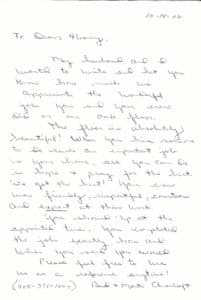 10-19-06
To Dean's Flooring,
My husband and I
wanted to write and let you
know how much we
appreciate the wonderful
job you and your crew
did on our oak floor.
The floor is absolutely
beautiful! When you have someone
to do such an important job
in your home, all you can do
is hope & pray for the best.
We got the best! Your crew
was friendly, respectful, courteous
and expert at their work.
You showed up at the
appointed time. You completed
the job exactly how and
when you said you would.
Please feel free to use
us as a reference anytime!